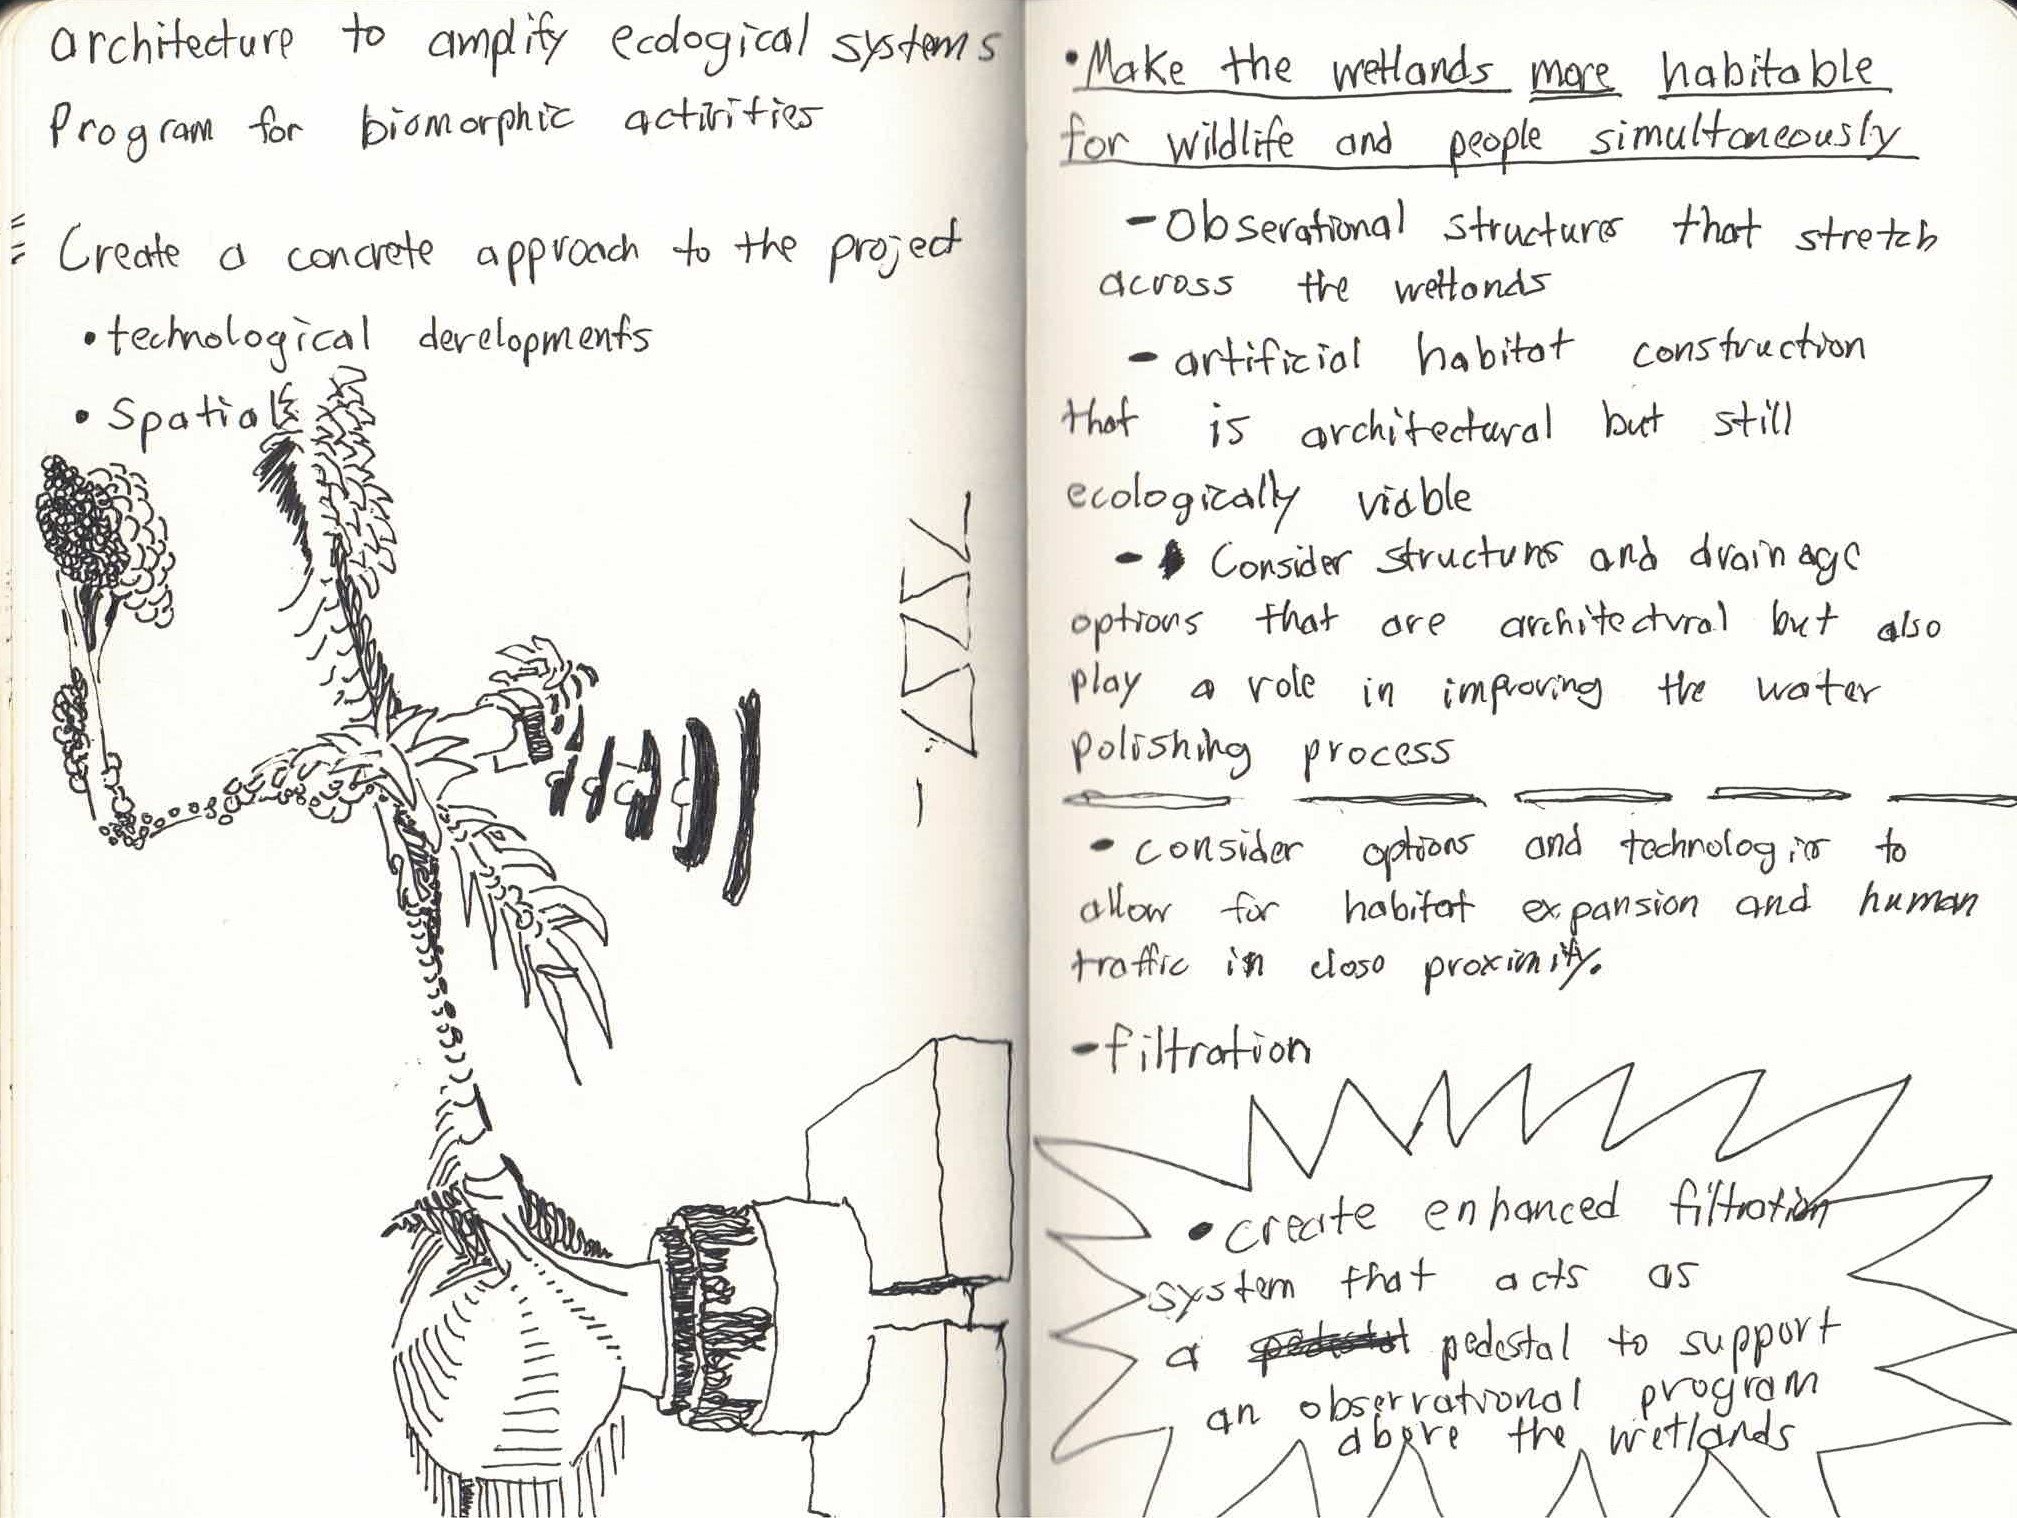 architecture to amplify ecological systems
Program for biomorphic activities
Create a concrete approach to the project
• technological developments
• Spatial
• Make the wetlands more habitable
for wildlife and people simultaneously
- Obserational structures that stretch
across the wetlands
- artificial habitat construction
that is architectural but still
ecologically viable
- Consider structures and drainage
options that are architectural but also
play a role in improving the water
polishing process
• consider options and technologies to
allow for habitat expansion and human
traffic in close proximity.
- filtration
• create enhanced filtration
system that acts as
a pedestal to support
an observational program
above the wetlands